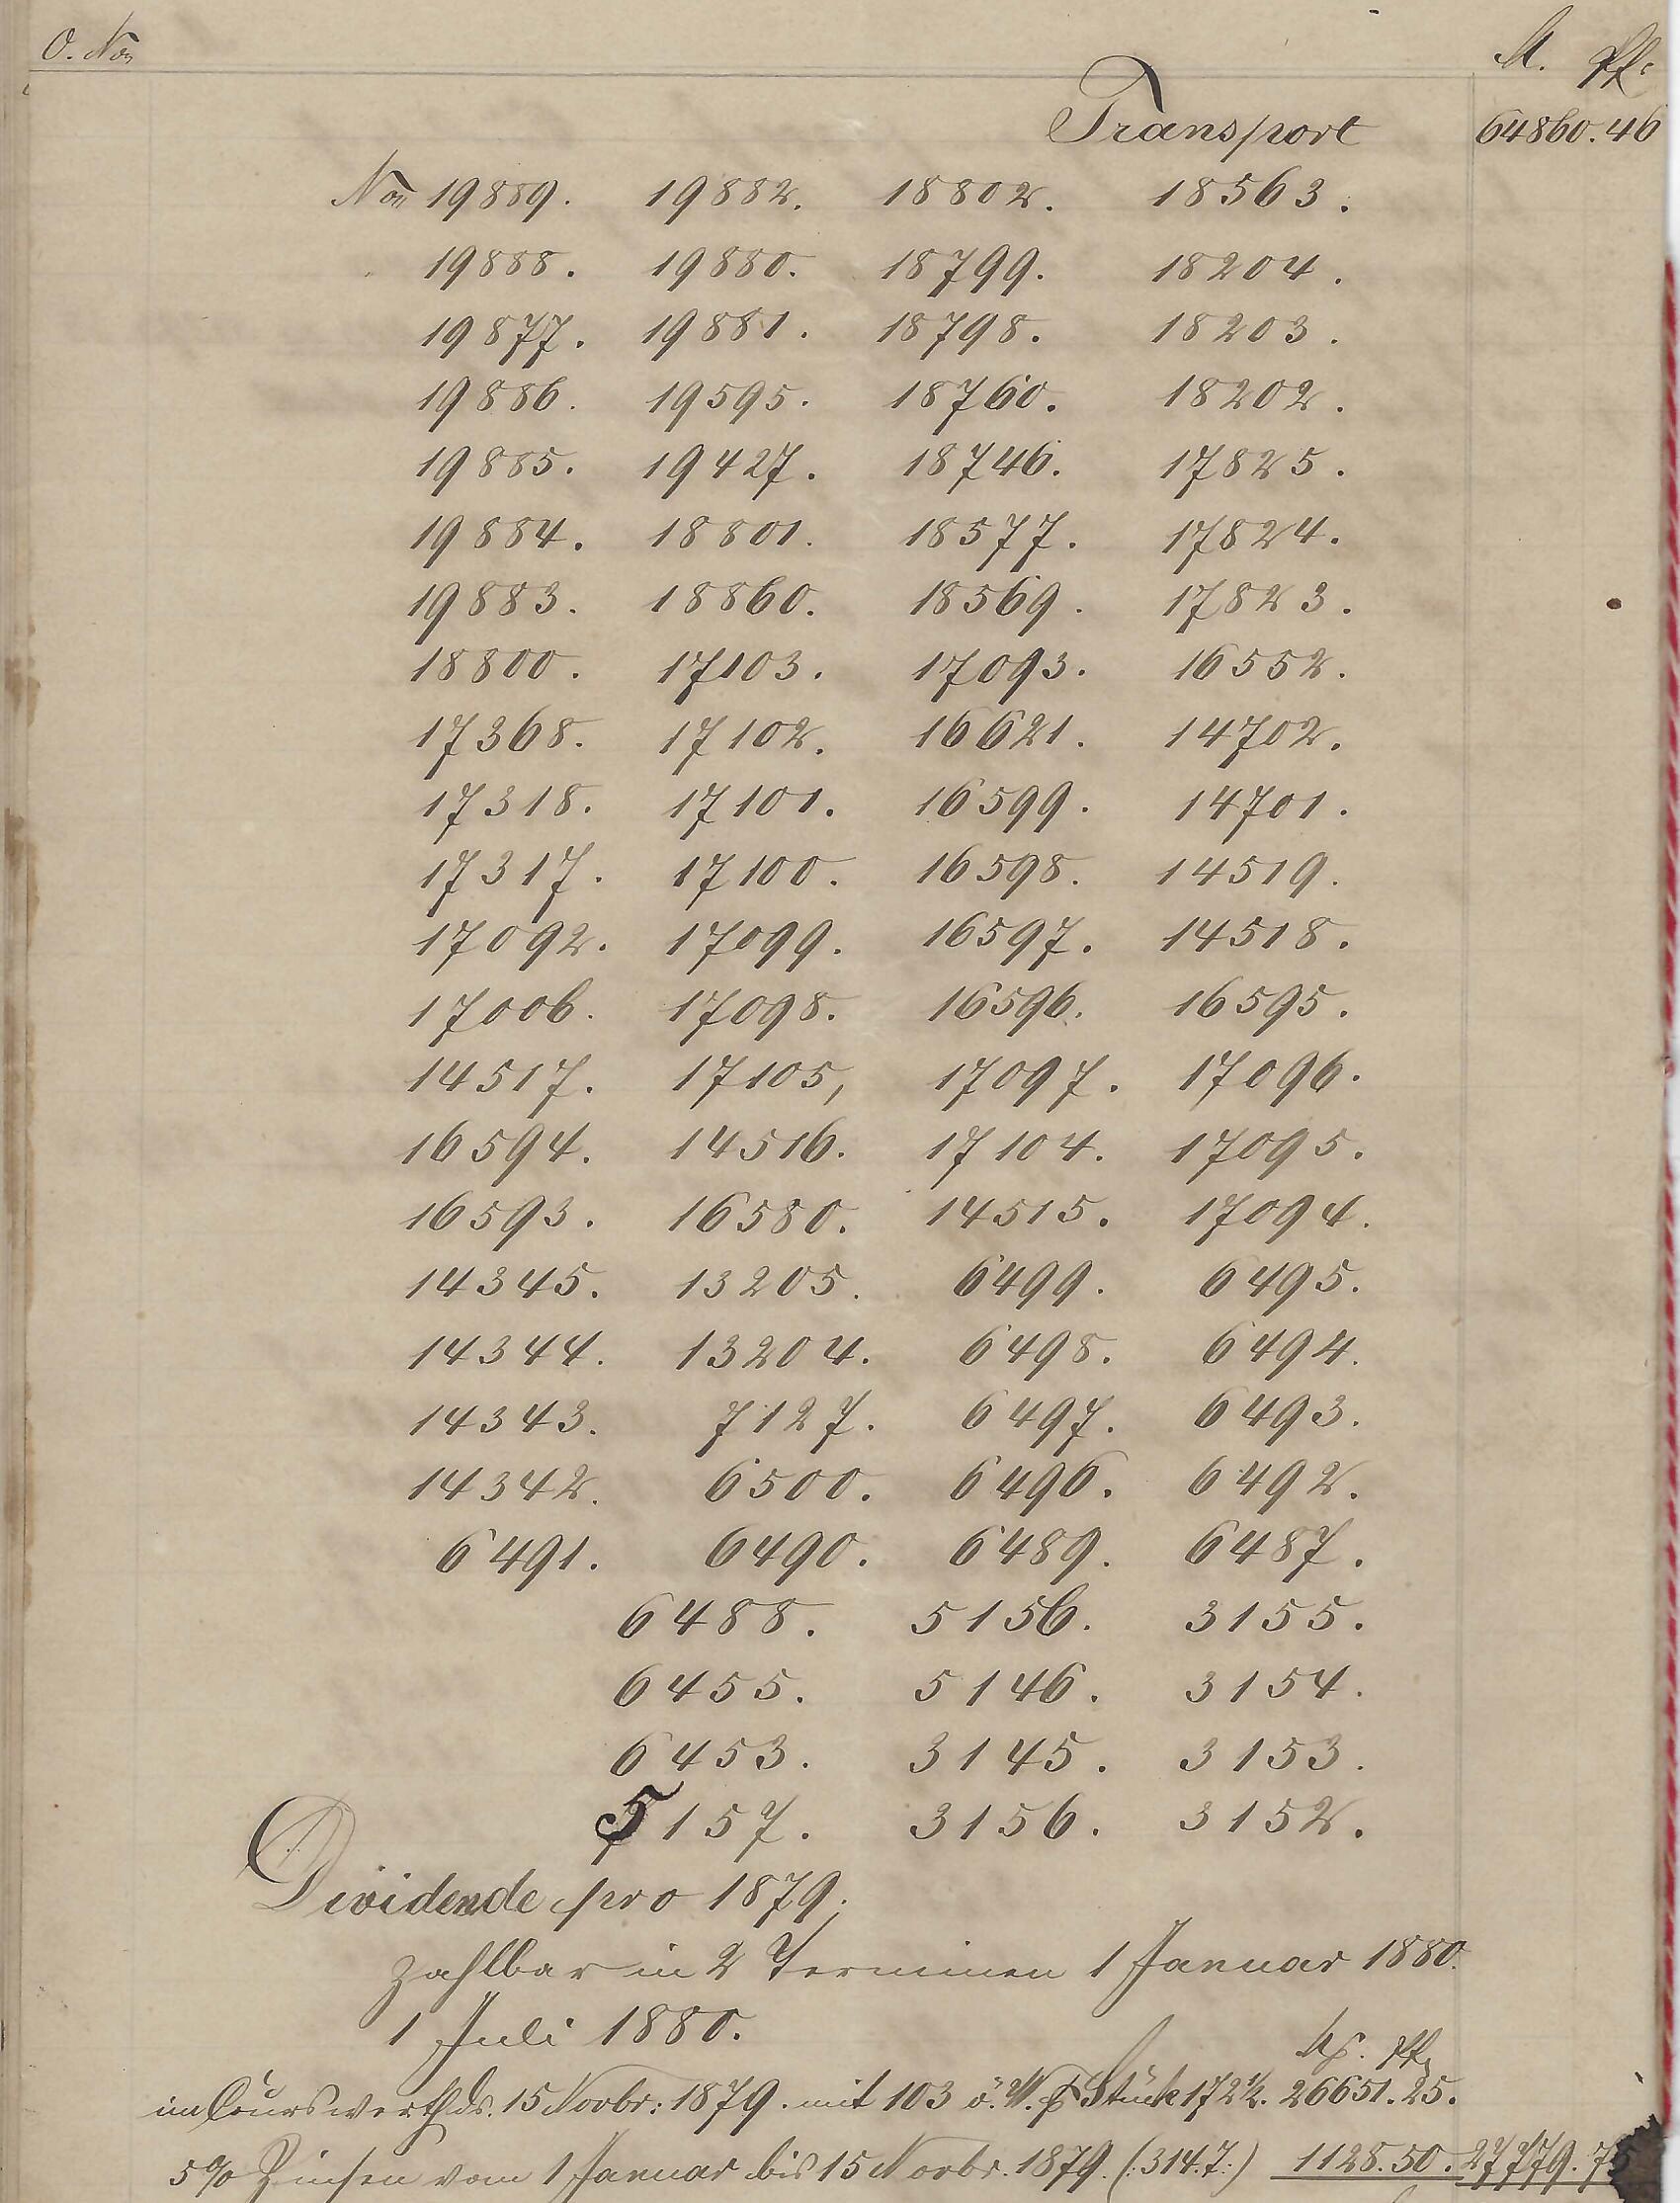 O. No M. Pf:
Transport 64860.46
No 19889. 19882. 18802. 18563.
19888. 19880. 18799. 18204.
19877. 19881. 18798. 18203.
19886. 19595. 18760. 18202.
19885. 19427. 18746. 17825.
19884. 18801. 18577. 17824.
19883. 18860. 18569. 17823.
18800. 17103. 17093. 16552.
17368. 17102. 16621. 14702.
17318. 17101. 16599. 14701.
17317. 17100. 16598. 14519.
17092. 17099. 16597. 14518.
17006. 17098. 16596. 16595.
14517. 17105, 17097. 17096.
16594. 14516. 17104. 17095.
16593. 16580. 14515. 17094.
14345. 13205. 6499. 6495.
14344. 13204. 6498. 6494.
14343. 7127. 6497. 6493.
14342. 6500. 6496. 6492.
6491. 6490. 6489. 6487.
6488. 5156. 3155.
6455. 5146. 3154.
6453. 3145. 3153.
5157. 3156. 3152.
Dividende pro 1879.
zahlbar in 2 Terminen 1 Januar 1880.
1 Juli 1880.
Pf.
im Courswerth ds. 15 Novbr: 1879. mit 103 ö.W. p Stück 172½. 26651.25.
5% Zinsen vom 1 Januar bis 15 Novbr. 1879. (:314.T:) 1128.50. 27779.75